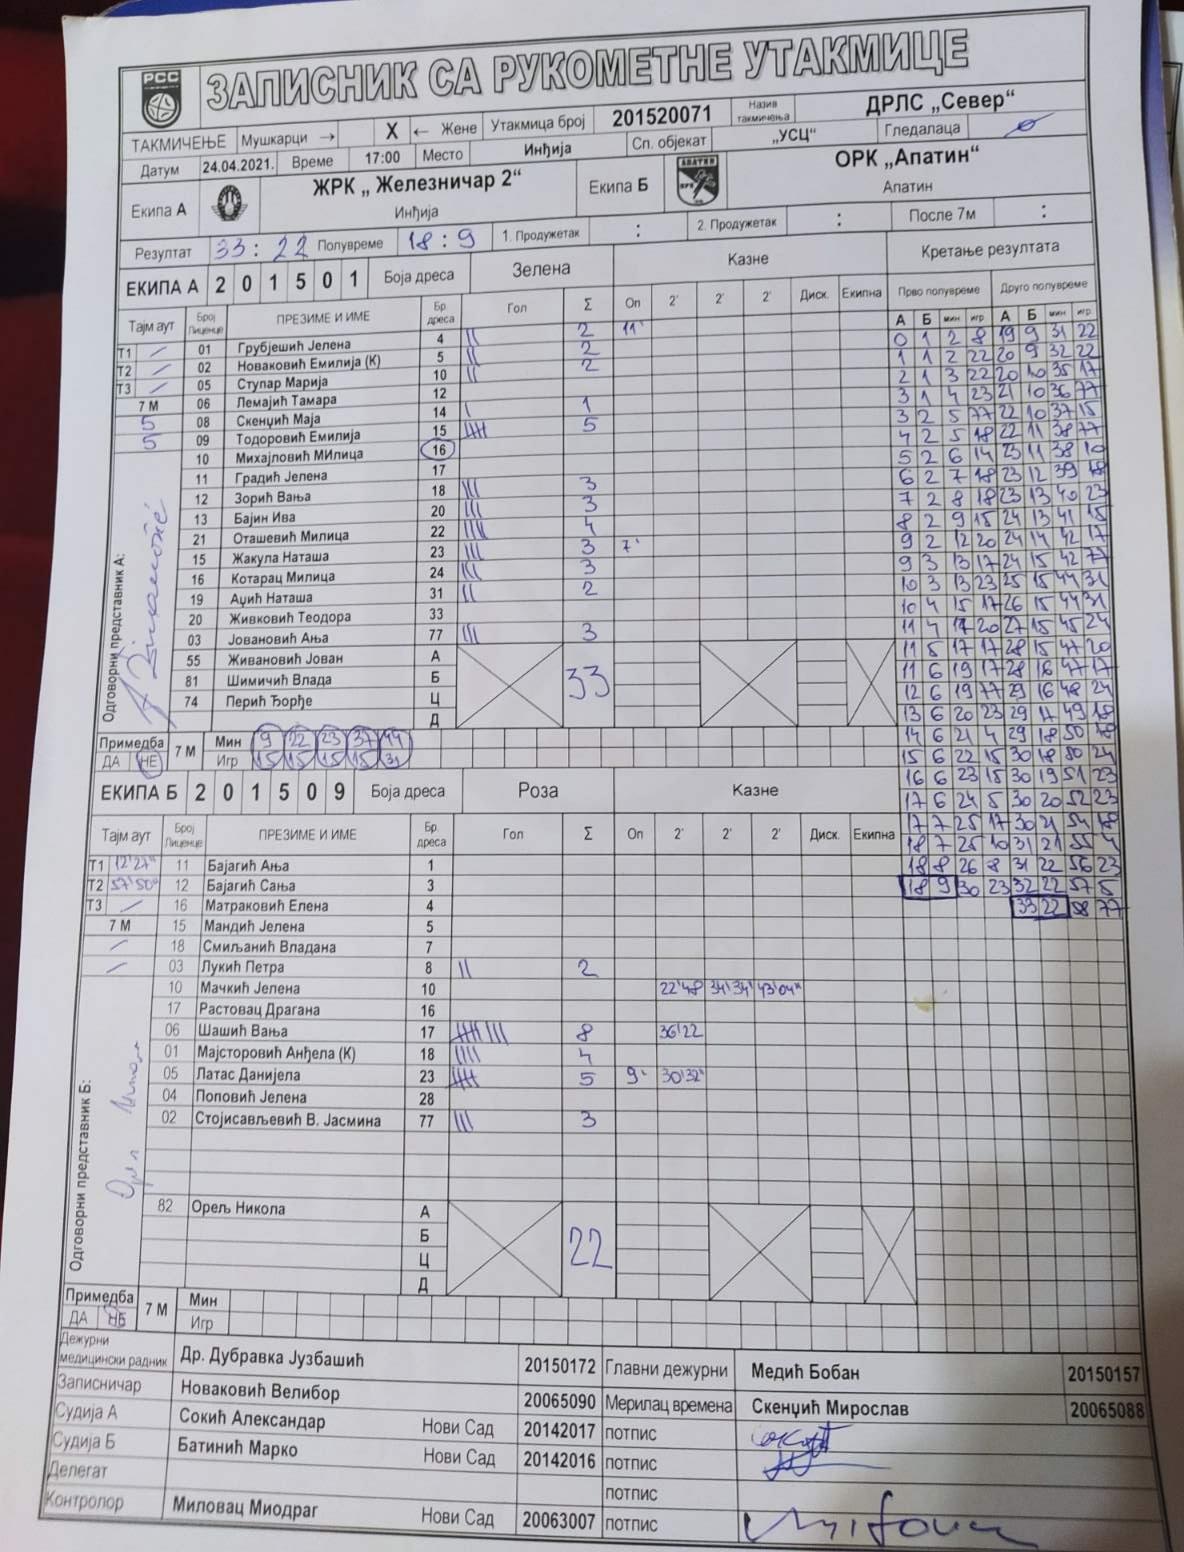 РСС
ЗАПИСНИК СА РУКОМЕТНЕ УТАКМИЦЕ
ТАКМИЧЕЊЕ Мушкарци → X ← Жене Утакмица број 201520071 Назив такмичења ДРЛС „Север“
Датум 24.04.2021. Време 17:00 Место Инђија Сп. објекат „УСЦ“ Гледалаца
Екипа А ЖРК „ Железничар 2“ Екипа Б АПАТИН ОРК ОРК „Апатин“
Инђија Апатин
Резултат 33 : 22 Полувреме 18 : 9 1. Продужетак : 2. Продужетак : После 7м :
ЕКИПА А 2 0 1 5 0 1 Боја дреса Зелена Казне Кретање резултата
Тајм аут Број Лиценце ПРЕЗИМЕ И ИМЕ Бр. дреса Гол Σ Оп 2' 2' 2' Диск. Екипна Прво полувреме Друго полувреме
А Б мин игр А Б мин игр
Т1 / 01 Грубјешић Јелена 4 || 2 11'
Т2 / 02 Новаковић Емилија (К) 5 || 2
Т3 / 05 Ступар Марија 10 || 2
7 М 06 Лемајић Тамара 12
5 08 Скенџић Маја 14 | 1
5 09 Тодоровић Емилија 15 5
10 Михајловић МИлица 16
11 Градић Јелена 17
12 Зорић Вања 18 ||| 3
13 Бајин Ива 20 ||| 3
21 Оташевић Милица 22 |||| 4
15 Жакула Наташа 23 ||| 3 7'
16 Котарац Милица 24 ||| 3
19 Аџић Наташа 31 || 2
20 Живковић Теодора 33
03 Јовановић Ања 77 ||| 3
55 Живановић Јован А 33
81 Шимичић Влада Б
74 Перић Ђорђе Ц
Д
Одговорни представник А:
0 1 2 8 19 9 31 22
1 1 2 22 20 9 32 22
2 1 3 22 20 10 35 17
3 1 4 23 21 10 36 77
3 2 5 77 22 10 37 15
4 2 5 18 22 11 38 77
5 2 6 14 23 11 38 10
6 2 7 18 23 12 39 18
7 2 8 18 23 13 40 23
8 2 9 15 24 13 41 15
9 2 12 20 24 14 42 17
9 3 13 17 24 15 42 77
10 3 13 23 25 15 44 31
10 4 15 17 26 15 44 31
11 4 17 20 27 15 45 24
11 5 17 17 28 15 47 20
11 6 19 17 28 16 47 17
12 6 19 77 29 16 48 24
13 6 20 23 29 17 49 18
14 6 21 4 29 18 50 18
15 6 22 15 30 18 50 24
16 6 23 15 30 19 51 23
17 6 24 5 30 20 52 23
17 7 25 17 30 21 54 18
18 7 25 10 31 21 55 4
18 8 26 8 31 22 56 23
18 9 30 23 32 22 57 5
33 22 58 77
Примедба 7 М Мин 9 22 23 37 44
ДА НЕ Игр 15 15 15 15 31
ЕКИПА Б 2 0 1 5 0 9 Боја дреса Роза Казне
Тајм аут Број Лиценце ПРЕЗИМЕ И ИМЕ Бр. дреса Гол Σ Оп 2' 2' 2' Диск. Екипна
Т1 12'27" 11 Бајагић Ања 1
Т2 57'50" 12 Бајагић Сања 3
Т3 / 16 Матраковић Елена 4
7 М 15 Мандић Јелена 5
/ 18 Смиљанић Владана 7
/ 03 Лукић Петра 8 || 2
10 Мачкић Јелена 10 22'48 34'34" 43'04"
17 Растовац Драгана 16
06 Шашић Вања 17 8 36'22
01 Мајсторовић Анђела (К) 18 |||| 4
05 Латас Данијела 23 5 9' 30'32"
04 Поповић Јелена 28
02 Стојисављевић В. Јасмина 77 ||| 3
82 Орељ Никола А 22
Б
Ц
Д
Одговорни представник Б:
Примедба 7 М Мин
ДА НЕ Игр
Дежурни медицински радник Др. Дубравка Јузбашић 20150172 Главни дежурни Медић Бобан 20150157
Записничар Новаковић Велибор 20065090 Мерилац времена Скенџић Мирослав 20065088
Судија А Сокић Александар Нови Сад 20142017 потпис
Судија Б Батинић Марко Нови Сад 20142016 потпис
Делегат потпис
Контролор Миловац Миодраг Нови Сад 20063007 потпис